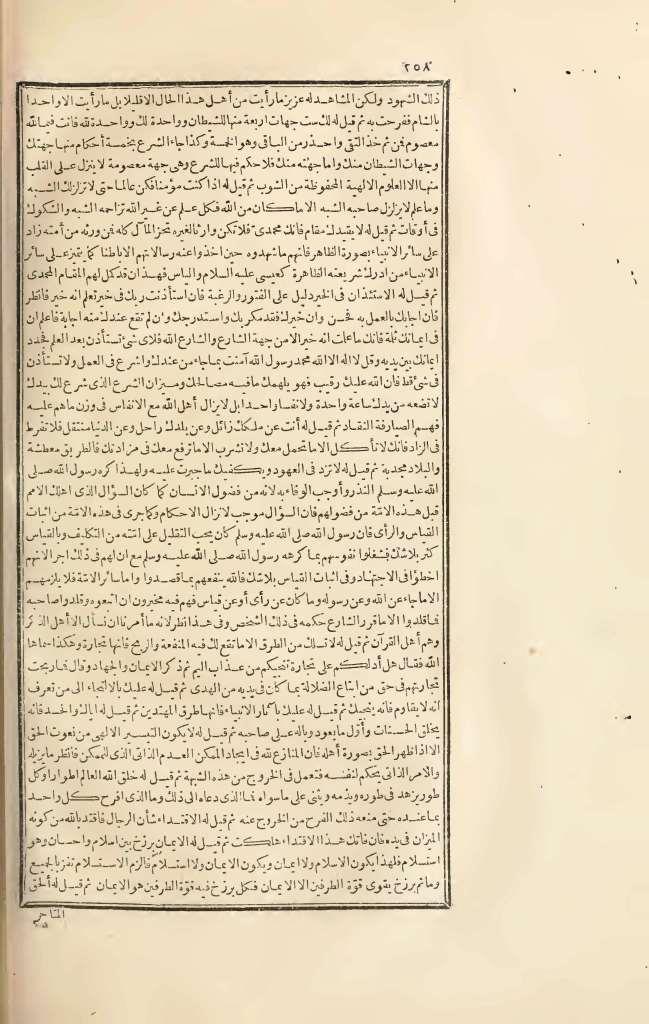 ٢٥٨
ذلك الشهود ولكن المشاهد له عزيز ما رأيت من أهل هذا الحال الا قليلا بل ما رأيت الا واحدا
بالشام ففرحت به ثم قيل له لك ست جهات أربعة منها للشيطان وواحدة لك وواحدة لله فانت فيما لله
معصوم فمن ثم خذ التقى واحذر من الباقى وهو الخمسة وكذا جاء الشرع بخمسة أحكام منها جهتك
وجهات الشيطان منك واما جهته منك فلا حكم فيها للشرع وهى جهة معصومة لا ينزل على القلب
منها الا العلوم الالهية المحفوظة من الشوب ثم قيل له اذا كنت مؤمنا فكن عالما حتى لا تزلزلك الشبه
وما علم لا يزلزل صاحبه الشبه الا ما كان من الله فكل علم عن غير الله تزاحمه الشبه والشكوك
فى أوقات ثم قيل له لا يقيدك مقام فانك محمدى فلا تكن وارثا لغيره تحز المال كله فمن ورثه من أمته زاد
على سائر الانبياء بصورة الظاهر فانهم ما شهدوه حين أخذوا عنه رسالاتهم الا باطنا كما يتميز على سائر
الانبياء من ادرك شريعته الظاهرة كعيسى عليه السلام والياس فهذان قد كمل لهم المقام المحمدى
ثم قيل له الاستئذان فى الخير دليل على الفتور والرغبة فان استأذنت ربك فى خير تعلم انه خير فانظر
فان اجابك بالعمل به فحسن وان خيرك فقد مكر بك واستدرجك وان لم تقع عندك منه اجابة فاعلم ان
فى ايمانك ثلمة فانك ما علمت انه خير الا من جهة الشارع والشارع الله فلاى شئ تستأذن بعد العلم فجدد
ايمانك بين يديه وقل لا اله الا الله محمد رسول الله آمنت بما جاء من عندك واشرع فى العمل ولا تستأذن
فى شئ قط فان الله عليك رقيب فهو يلهمك ما فيه مصالحك وميزان الشرع الذى شرع لك بيدك
لا تضعه من يدك ساعة واحدة ولا نفسا واحدا بل لا يزال أهل الله مع الانفاس فى وزن ما هم عليه
فهم الصيارفة النقاد ثم قيل له أنت عن ملكك زائل وعن بلدك راحل وعن الدنيا منتقل فلا تفرط
فى الزاد فانك لا تأكل الا ما تحمل معك ولا تشرب الا ما ترفع معك فى مزادتك فالطريق معطشة
والبلاد مجدبة ثم قيل له لا تزد فى العهود ويكفيك ما جبرت عليه ولهذا كره رسول الله صلى
الله عليه وسلم النذر وأوجب الوفاء به لانه من فضول الانسان كما كان السؤال الذى اهلك الامم
قبل هذه الامة من فضولهم فان السؤال موجب لانزال الاحكام وكما جرى فى هذه الامة من اثبات
القياس والرأى فان رسول الله صلى الله عليه وسلم كان يحب التقليل على امته من التكليف وبالقياس
كثر بلا شك فشغلوا نفوسهم بما كرهه رسول الله صلى الله عليه وسلم مع ان لهم فى ذلك اجرا لانهم
اخطؤا فى الاجتهاد وفى اثبات القياس بلا شك فالله ينفعهم بما قصدوا واما سائر الامة فلا يلزمهم
الا ما جاء عن الله وعن رسوله وما كان عن رأى أو عن قياس فهم فيه مخيرون ان اتبعوه وقلدوا صاحبه
فما قلدوا الا ما قرر الشارع حكمه فى ذلك الشخص وفى هذا نظر لانه ما أمرنا ان نسأل الا أهل الذكر
وهم أهل القرآن ثم قيل له لا تسلك من الطرق الا ما تقع لك فيه المنفعة والربح فانها تجارة وهكذا سماها
الله فقال هل أدلكم على تجارة تنجيكم من عذاب اليم ثم ذكر الايمان والجهاد وقال فما ربحت
تجارتهم فى حق من ابتاع الضلالة بما كان فى يديه من الهدى ثم قيل له عليك بالالتجاء الى من تعرف
انه لا يقاوم فانه ينجيك ثم قيل له عليك بآثار الانبياء فانها طرق المهتدين ثم قيل له اياك والحسد فانه
يحلق الحسنات وأول ما يعود وباله على صاحبه ثم قيل له لا يكون التيسير الالهى من نعوت الحق
الا اذا ظهر الحق بصورة أهله فان المنازع لله فى ايجاد الممكن العدم الذاتى الذى للممكن فانظر ما يزيله
والامر الذاتى يحكم لنفسه فتعمل فى الخروج من هذه الشبهة ثم قيل له خلق الله العالم اطوارا وكل
طور يزهد فى طوره ويذمه ويثنى على ما سواه فما الذى دعاه الى ذلك وما الذى افرح كل واحد
بما عنده حتى منعه ذلك الفرح من الخروج عنه ثم قيل له الاقتداء شأن الرجال فاقتد بالله من كونه
الميزان فى يده فان فاتك هذا الاقتداء هلكت ثم قيل له الايمان برزخ بين اسلام واحسان وهو
استسلام فلهذا يكون الاسلام ولا ايمان ويكون الايمان ولا استسلام فالزم الاستسلام تفز بالجميع
وما ثم برزخ يقوى قوة الطرفين الا الايمان فكل برزخ فيه قوة الطرفين هو الايمان ثم قيل له ألحق